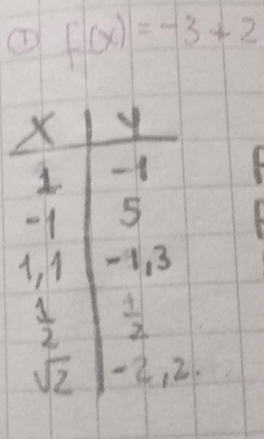 ① f(x) = -3 + 2
x | y
1 | -1
-1 | 5
1,1 | -1,3
1/2 | 1/2
√2 | -2,2.